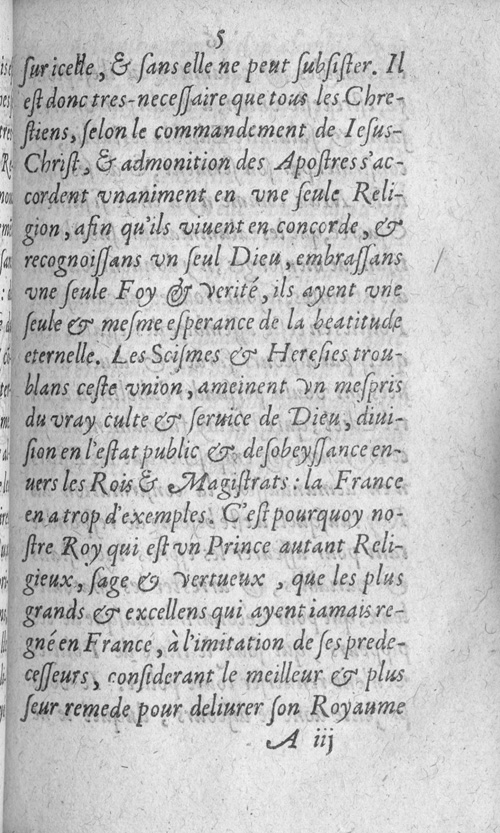 5
ſur icelle, & ſans elle ne peut ſubſiſter. Il
eſt donc tres-neceſſaire que tous les Chre-
ſtiens, ſelon le commandement de Ieſus-
Chriſt, & admonition des Apoſtres s'ac-
cordent vnaniment en vne ſeule Reli-
gion, afin qu'ils viuent en concorde, &
recognoiſſans vn ſeul Dieu, embraſſans
vne ſeule Foy & verité, ils ayent vne
ſeule & meſme eſperance de la beatitude
eternelle. Les Sciſmes & Hereſies trou-
blans ceſte vnion, ameinent vn meſpris
du vray culte & ſeruice de Dieu, diui-
ſion en l'eſtat public & deſobeyſſance en-
uers les Rois & Magiſtrats : la France
en a trop d'exemples. C'eſt pourquoy no-
ſtre Roy qui eſt vn Prince autant Reli-
gieux, ſage & vertueux , que les plus
grands & excellens qui ayent iamais re-
gné en France, à l'imitation de ſes prede-
ceſſeurs, conſiderant le meilleur & plus
ſeur remede pour deliurer ſon Royaume
A iij